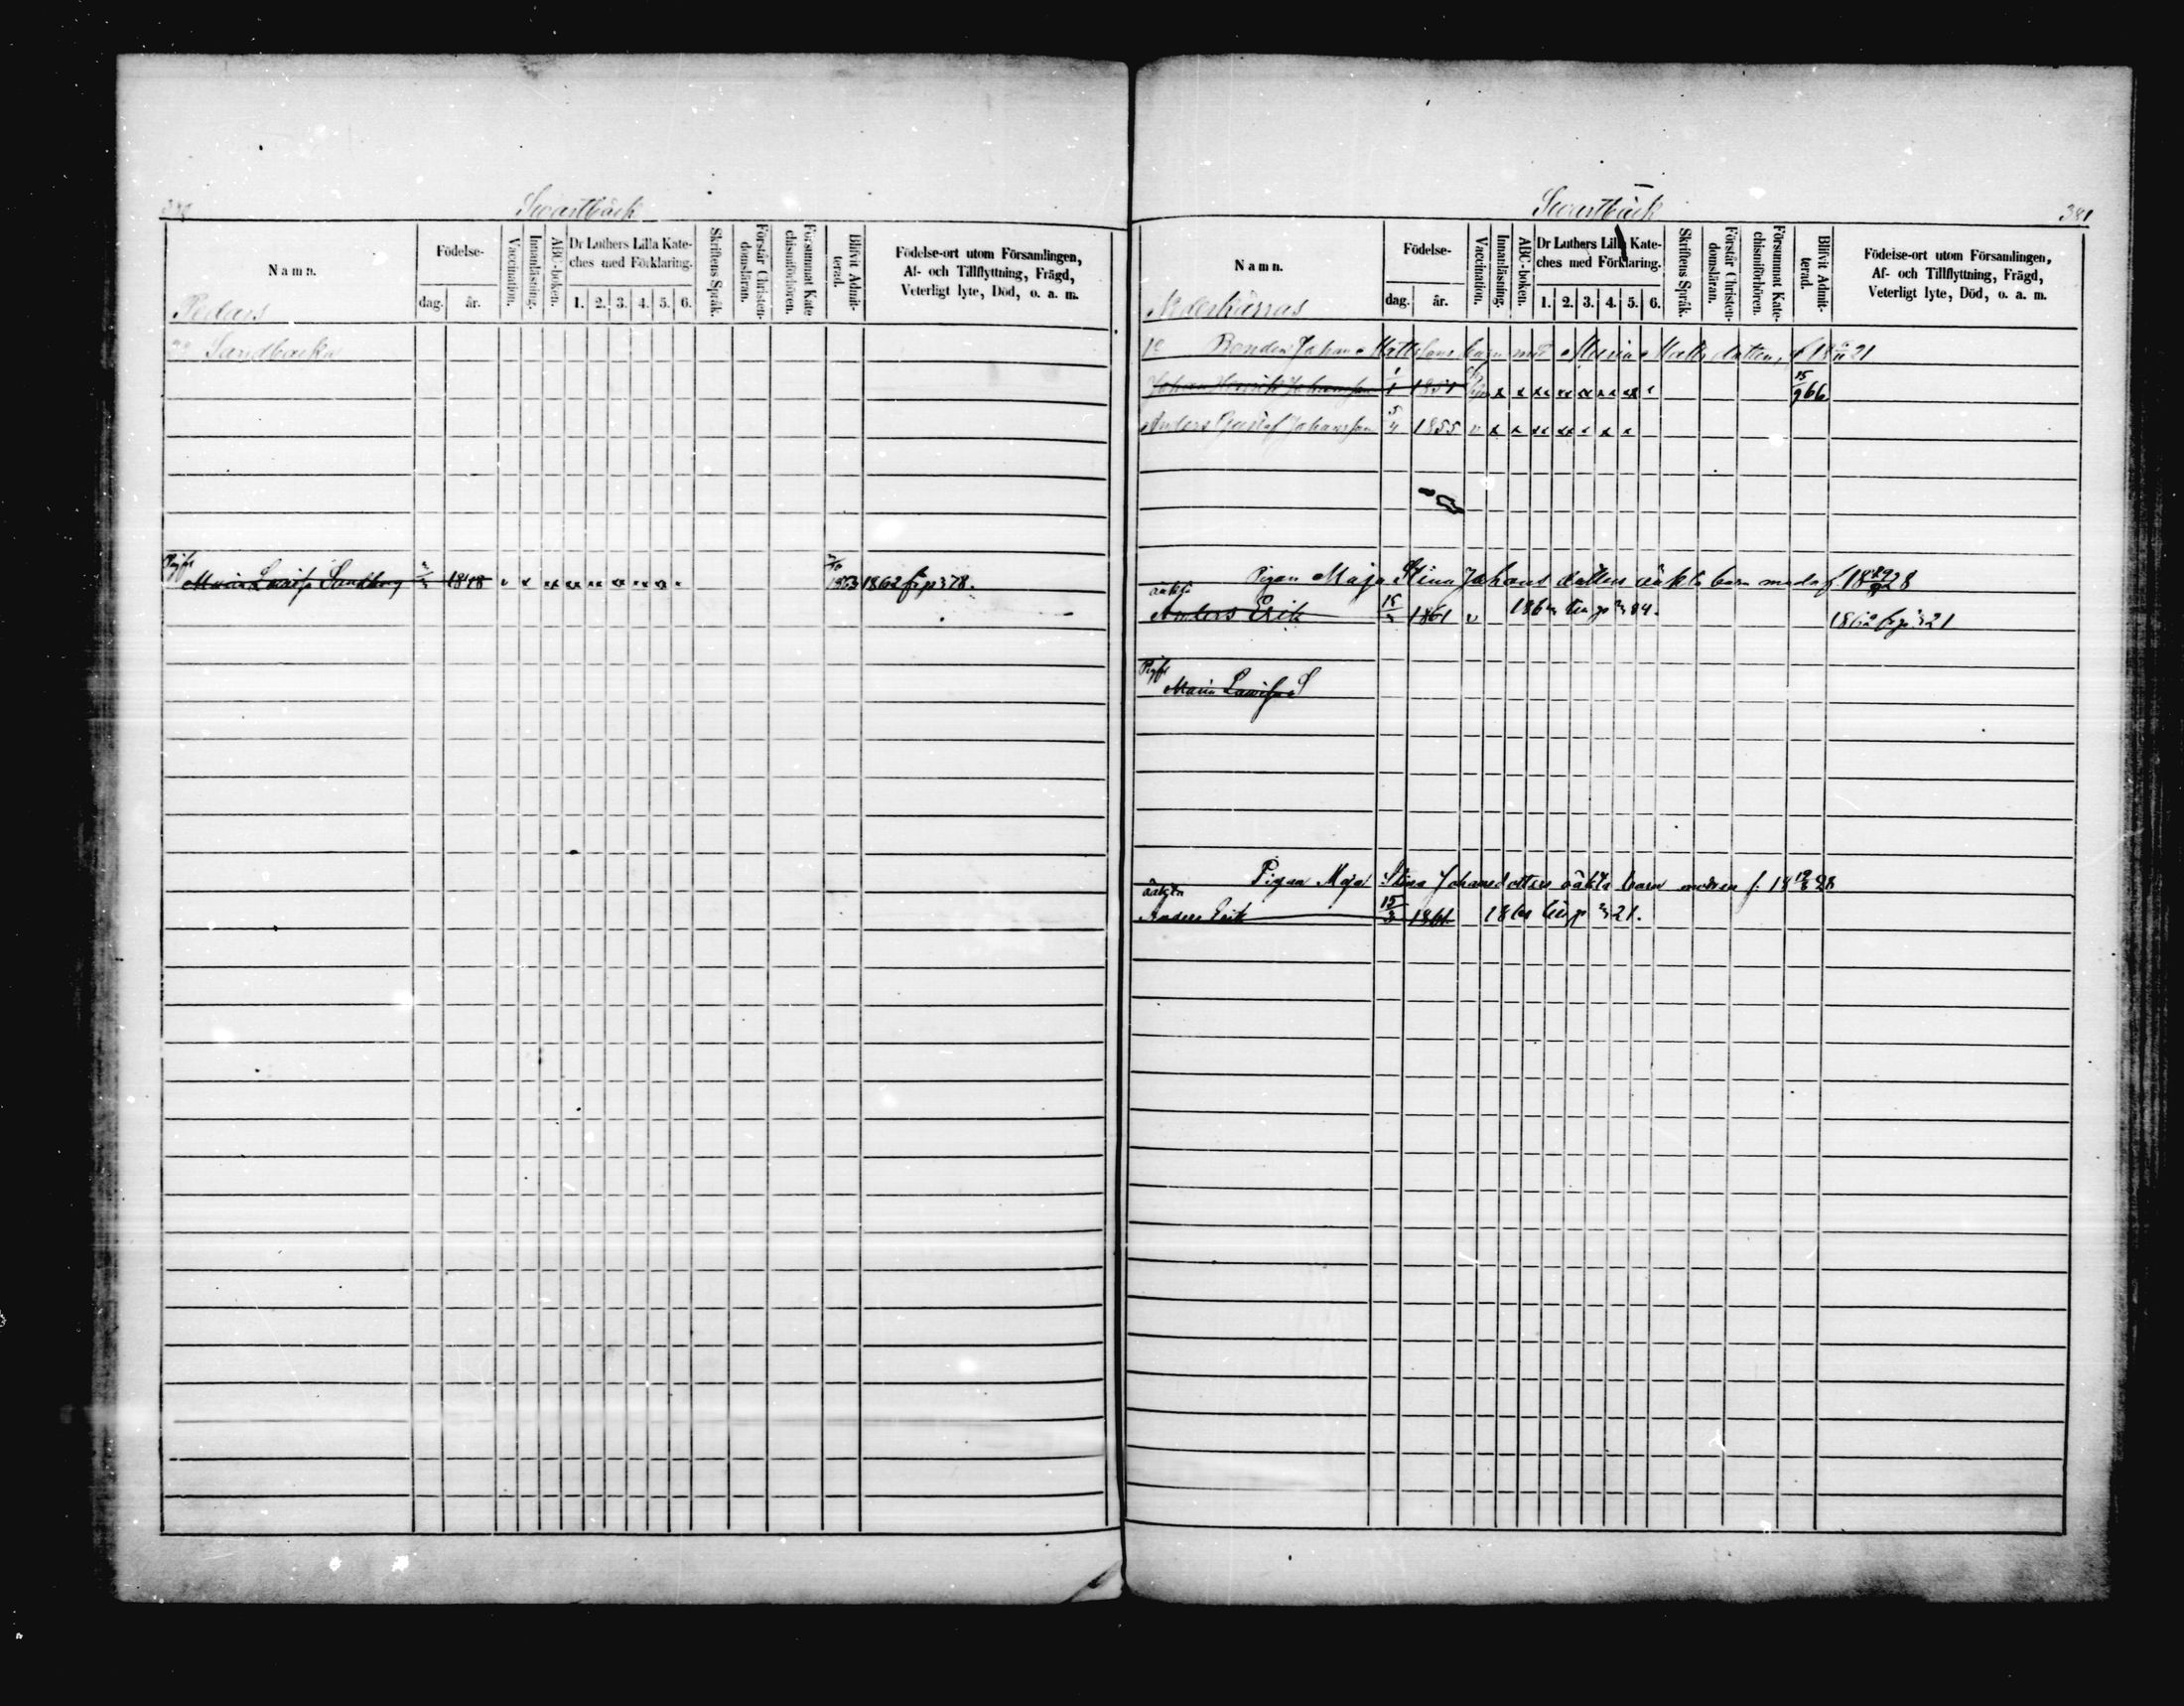 380 Svartbäck
Namn. Födelse- dag. år. Vaccination. Innanläsning. ABC-boken. Dr Luthers Lilla Kateches med Förklaring. 1. 2. 3. 4. 5. 6. Skriftens Språk. Förstår Christendomsläran. Försummat Katechismiförhören. Blifvit Admitterad. Födelse-ort utom Församlingen, Af- och Tillflyttning, Frägd, Veterligt lyte, Död, o. a. m.
Pedars
Sandbacka
Pigfl
Maria Lovisa Sandberg 1848 1863 1862 fr p 378.
Svartbäck 381
Namn. Födelse- dag. år. Vaccination. Innanläsning. ABC-boken. Dr Luthers Lilla Kateches med Förklaring. 1. 2. 3. 4. 5. 6. Skriftens Språk. Förstår Christendomsläran. Försummat Katechismiförhören. Blifvit Admitterad. Födelse-ort utom Församlingen, Af- och Tillflyttning, Frägd, Veterligt lyte, Död, o. a. m.
Bonden Johan Mattssons barn med Maria Matts dotter, f 18 21
Johan Henrik Johansson 1851 x x xx xx xx xx xx 15/9 66
Anders Gustaf Johansson 5/4 1855 v x x xx xx x x x
Pigan Maja Stina Johans dotters oäkta barn f. 18 28
oäkta
Anders Erik 15/3 1861 v 1862 fr p 321
Pigfl
Maria Lovisa S
Pigan Maja Stina Johansdotters oäkta barn modren f. 18 28
oäkta
Anders Erik 15/3 1861 till p 321.